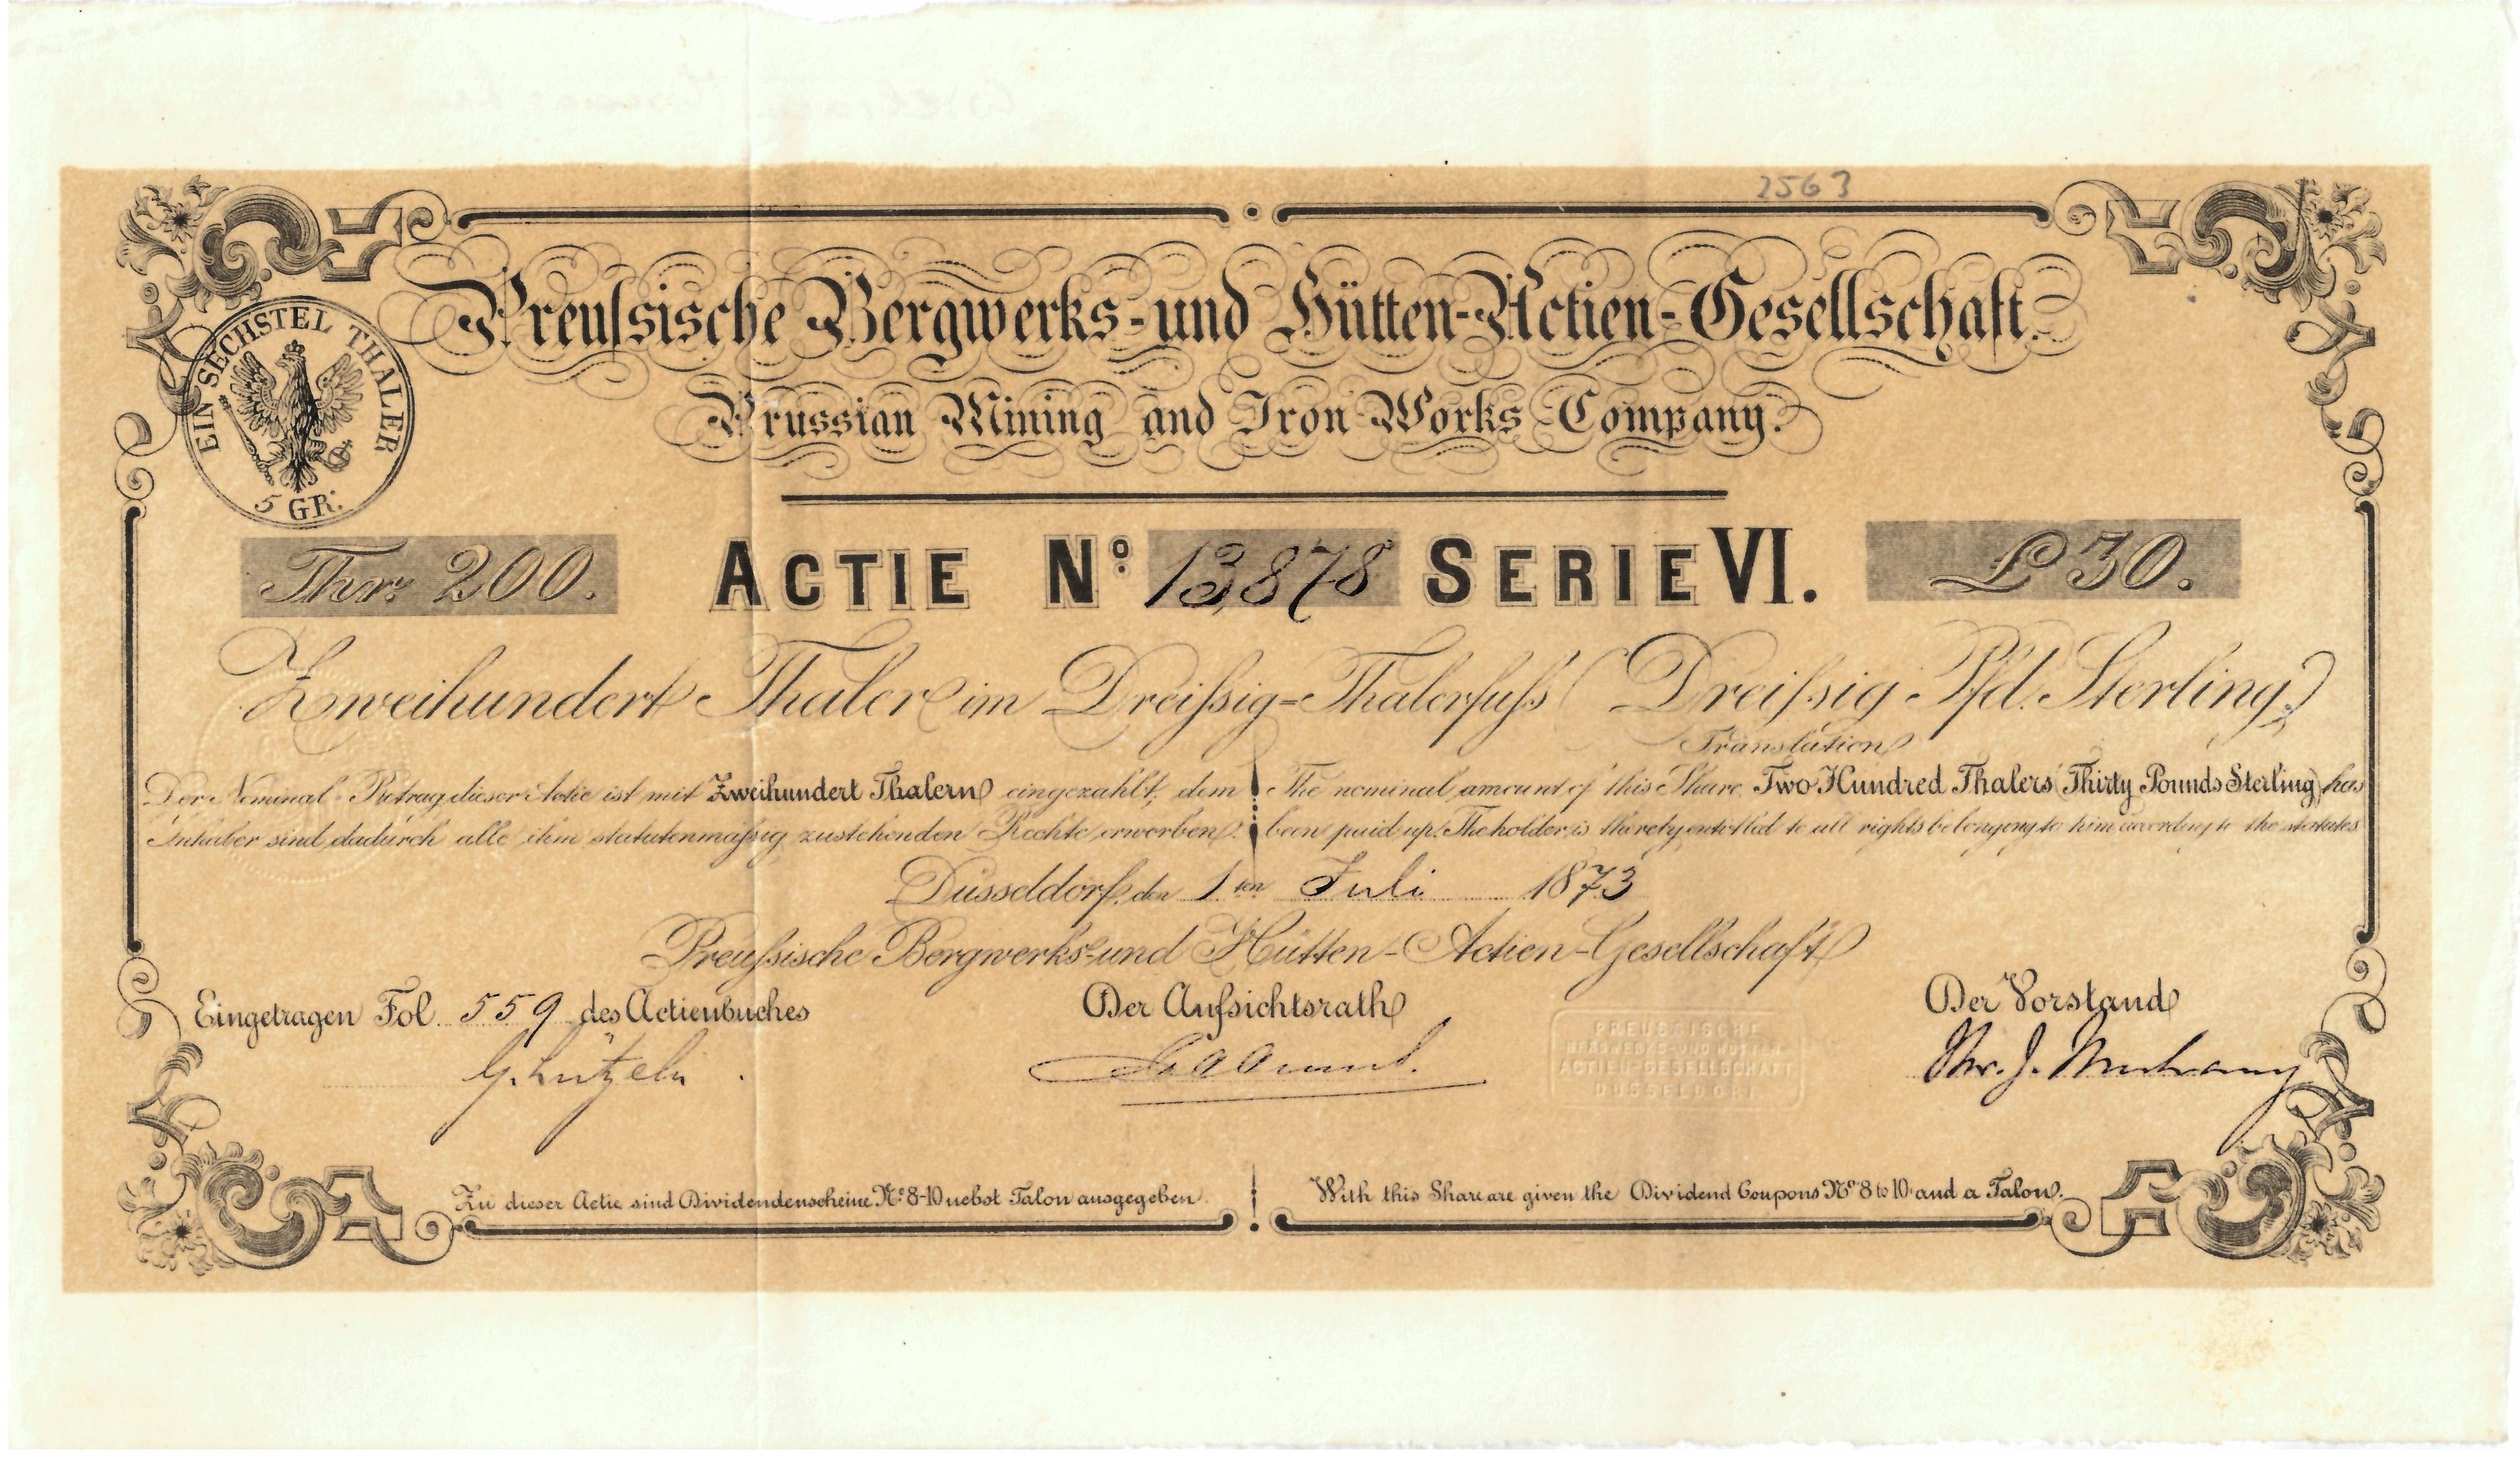 2563
Preuſsische Bergwerks- und Hütten-Actien-Gesellschaft.
Prussian Mining and Iron Works Company.
EIN SECHSTEL THALER
5 GR:
Thlr: 200. ACTIE No: 13,878 SERIE VI. £ 30.
Zweihundert Thaler im Dreiſsig-Thalerfuſs (Dreiſsig Pfd. Sterling.)
Translation
Der Nominal-Betrag dieser Actie ist mit Zweihundert Thalern eingezahlt, dem
Inhaber sind dadurch alle ihm statutenmäſsig zustehenden Rechte erworben.
The nominal amount of this Share Two Hundred Thalers (Thirty Pounds Sterling) has
been paid up. The holder is thereby entitled to all rights belonging to him according to the statutes
Düsseldorf, den 1ten Juli 1873
Preuſsische Bergwerks- und Hütten-Actien-Gesellschaft
Eingetragen Fol. 559 des Actienbuches
Der Aufsichtsrath
Der Vorstand
PREUSSISCHE
BERGWERKS-UND HÜTTEN
ACTIEN-GESELLSCHAFT
DÜSSELDORF
Zu dieser Actie sind Dividendenscheine No. 8-10 nebst Talon ausgegeben.
With this Share are given the Dividend Coupons No. 8 to 10 and a Talon.